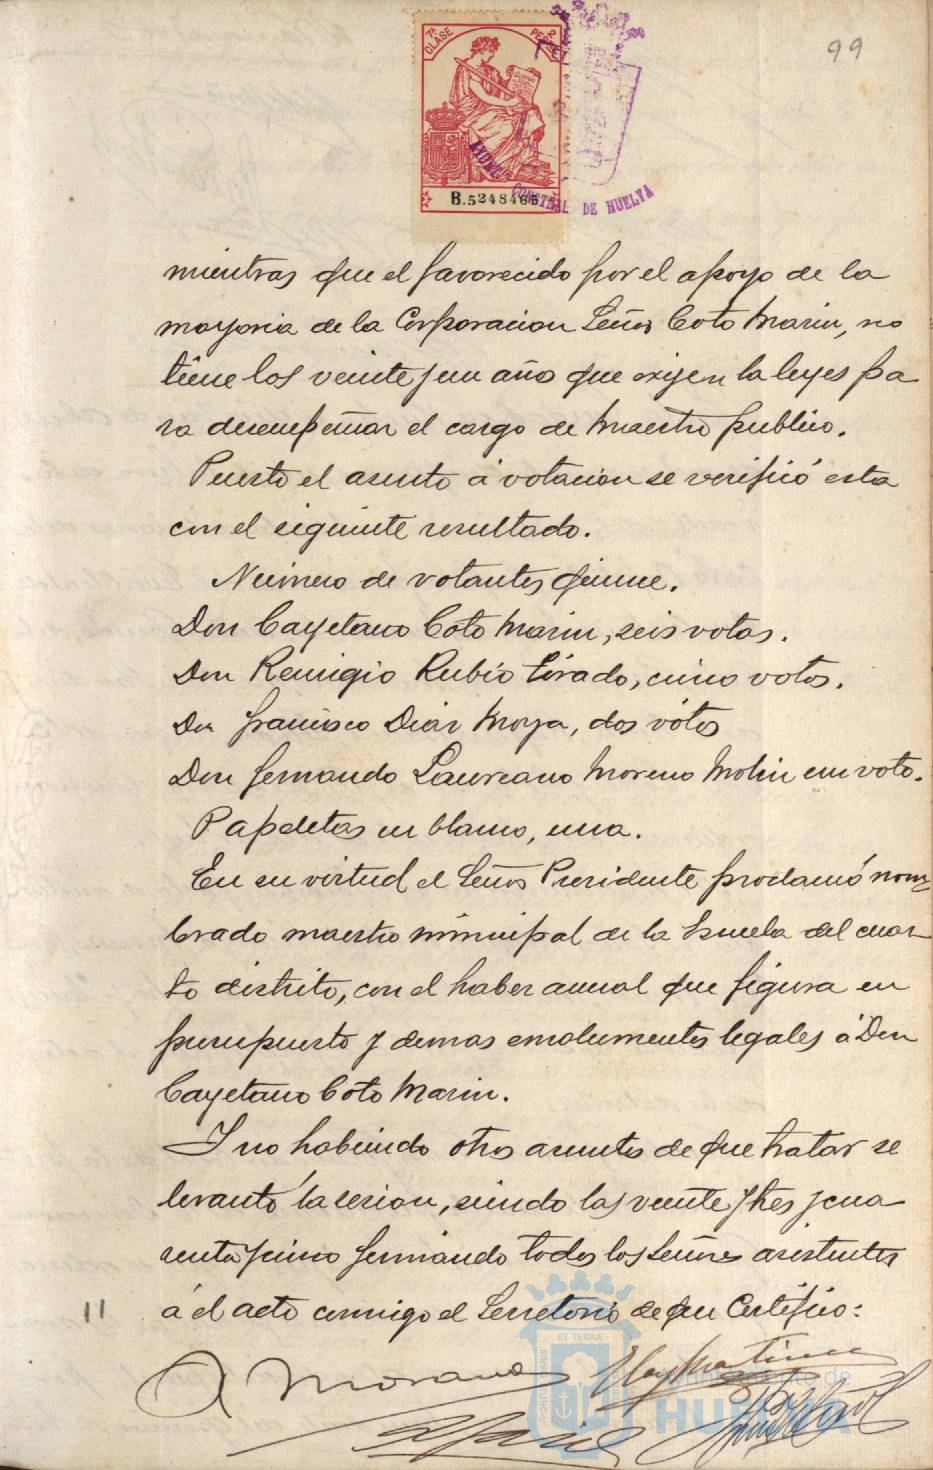 99
7ª CLASE
2 PES
B.5248465
CONSTNAL DE HUELVA
mientras que el favorecido por el apoyo de la
mayoria de la Corporacion Señor Coto Marin, no
tiene los veinte y un año que exijen la leyes pa
ra desempeñar el cargo de Maestro publico.
Puesto el asunto á votacion se verificó esta
con el siguiente resultado.
Número de votantes quince.
Don Cayetano Coto Marin, seis votos.
Don Remigio Rubio Tirado, cinco votos.
Don Francisco Diaz Moya, dos votos
Don Fernando Laureano Moreno Molin un voto.
Papeletas en blanco, una.
En su virtud el Señor Presidente proclamó nom
brado maestro municipal de la Escuela del cuar
to distrito, con el haber anual que figura en
presupuesto y demas emolumentos legales á Don
Cayetano Coto Marin.
Y no habiendo otros asuntos de que tratar se
levantó la sesion, siendo las veinte y tres y cua
renta y cinco firmando todos los Señores asistentes
11 á el acto conmigo el Secretario de que Certifico:
A Morano
ET TERRÆ
Ayuntamiento de
HUELVA